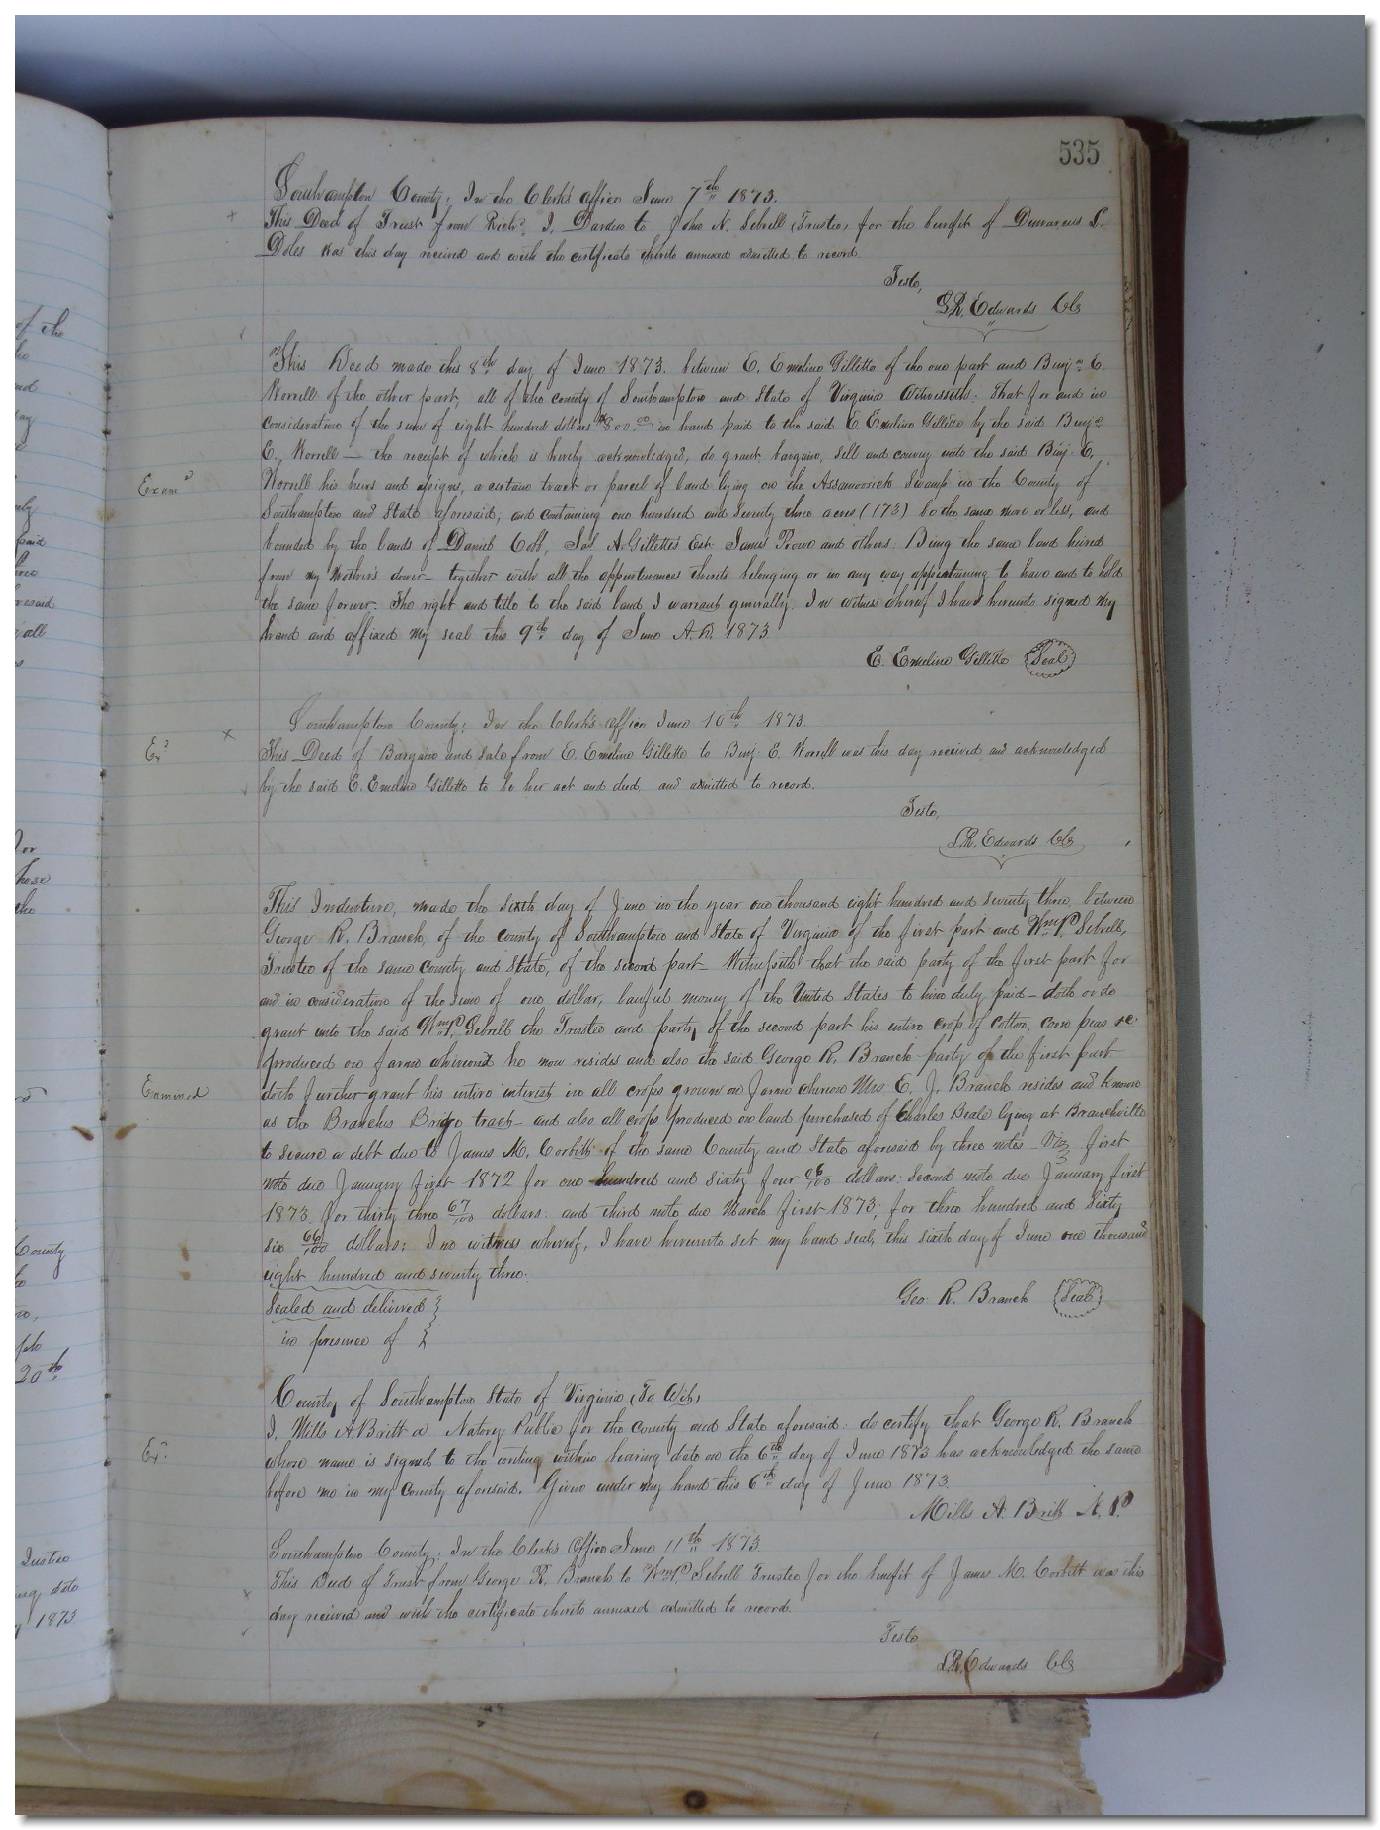 535
Southampton County: In the Clerk's Office June 7th 1873.
This Deed of Trust from Richd. I. Darden to John N. Sebrell (Trustee, for the benefit of S.
Doles was this day received and with the certificate thereto annexed admitted to record
Teste,
Edwards Clk
This Deed made this 8th day of June 1873. between E. Emeline Gillette of the one part and Benjn. E.
Worrell of the other part, all of the county of Southampton and State of Virginia Witnesseth: That for and in
consideration of the sum of eight hundred dollars $800.00 in hand paid to the said E. Emeline Gillette by the said Benjn
E. Worrell — the receipt of which is hereby acknowledged, do grant, bargain, sell and convey unto the said Benj. E.
Examd
Worrell his heirs and assigns, a certain tract or parcel of land lying on the Assamoosick Swamp in the County of
Southampton and State aforesaid, and containing one hundred and seventy three acres (173) be the same more or less, and
bounded by the lands of Daniel Cobb, Jas. A. Gillette's Est. James Rowe and others. Being the same land heired
from my Mother's dower – together with all the appurtenances thereto belonging or in any way appertaining to have and to hold
the same forever. The right and title to the said land I warrant generally. In witness whereof I have hereunto signed my
hand and affixed my seal this 9th day of June A.D. 1873
E. Emeline Gillette Seal
Southampton County: In the Clerk's Office June 10th 1873.
Exd
This Deed of Bargain and Sale from E. Emeline Gillette to Benj. E. Worrell was this day received and acknowledged
by the said E. Emeline Gillette to be her act and deed and admitted to record.
Teste,
L.R. Edwards Clk
This Indenture, made the sixth day of June in the year one thousand eight hundred and seventy three, between
George R. Branch, of the county of Southampton and State of Virginia of the first part and Wm. P. Sebrell,
Trustee of the same County and State, of the second part – Witnesseth that the said party of the first part for
and in consideration of the sum of one dollar, lawful money of the United States to him duly paid – doth
grant unto the said Wm. P. Sebrell the Trustee and party of the second part his entire crop of cotton, corn peas &c
produced on farm whereon he now resides and also the said George R. Branch party of the first part
Examined
doth further grant his entire interest in all crops grown on farm whereon Mrs. E. J. Branch resides and known
as the Branches Bridge tract – and also all crops produced on land purchased of Charles Beale lying at Branchville
to secure a debt due to James M. Corbitt of the same County and State aforesaid by three notes – Viz first
note due January first 1872 for one hundred and sixty four 06/100 dollars: second note due January first
1873 for thirty three 67/100 dollars: and third note due March first 1873, for three hundred and sixty
six 66/100 dollars: In witness whereof, I have hereunto set my hand seal, this sixth day of June one thousand
eight hundred and seventy three.
Geo. R. Branch Seal
Sealed and delivered
in presence of
County of Southampton State of Virginia (To Wit,
I, Mills A. Britt a Notary Public for the County and State aforesaid: do certify that George R. Branch
Exd
whose name is signed to the writing within bearing date on the 6th day of June 1873 has acknowledged the same
before me in my County aforesaid. Given under my hand this 6th day of June 1873.
Mills A. Britt N.P.
Southampton County: In the Clerk's Office June 11th 1873.
This Deed of Trust from George R. Branch to Wm. P. Sebrell Trustee for the benefit of James M. Corbitt was this
day received and with the certificate thereto annexed admitted to record.
Teste
L.R. Edwards Clk
of the
County
20th
1873